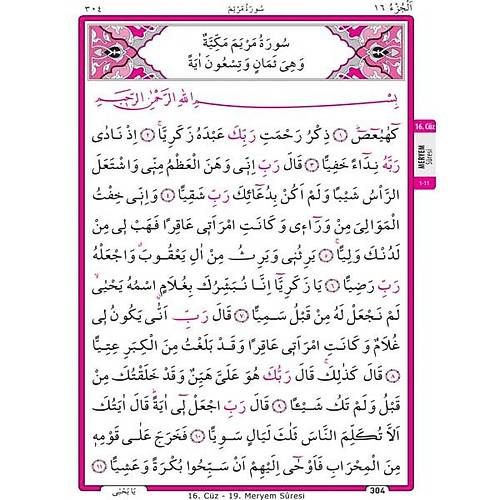 اَلْجُزْءُ ١٦ سُورَةُ مَرْيَمَ ٣٠٤
سُورَةُ مَرْيَمَ مَكِّيَّةٌ
وَهِىَ ثَمَانٍ وَتِسْعُونَ اٰيَةً
بِسْــمِ اللّٰهِ الرَّحْمٰنِ الرَّح۪يمِ
كٓهٰيٰعٓصٓ ﴿١﴾ ذِكْرُ رَحْمَتِ رَبِّكَ عَبْدَهُ زَكَرِيَّا ﴿٢﴾ اِذْ نَادٰى
رَبَّهُ نِدَٓاءً خَفِيًّا ﴿٣﴾ قَالَ رَبِّ اِنّ۪ى وَهَنَ الْعَظْمُ مِنّ۪ى وَاشْتَعَلَ
الرَّاْسُ شَيْبًا وَلَمْ اَكُنْ بِدُعَٓائِكَ رَبِّ شَقِيًّا ﴿٤﴾ وَاِنّ۪ى خِفْتُ
الْمَوَالِىَ مِنْ وَرَٓاء۪ى وَكَانَتِ امْرَاَت۪ى عَاقِرًا فَهَبْ ل۪ى مِنْ
لَدُنْكَ وَلِيًّا ﴿٥﴾ يَرِثُن۪ى وَيَرِثُ مِنْ اٰلِ يَعْقُوبَ وَاجْعَلْهُ
رَبِّ رَضِيًّا ﴿٦﴾ يَا زَكَرِيَّٓا اِنَّا نُبَشِّرُكَ بِغُلَامٍ اسْمُهُ يَحْيٰى
لَمْ نَجْعَلْ لَهُ مِنْ قَبْلُ سَمِيًّا ﴿٧﴾ قَالَ رَبِّ اَنّٰى يَكُونُ ل۪ى
غُلَامٌ وَكَانَتِ امْرَاَت۪ى عَاقِرًا وَقَدْ بَلَغْتُ مِنَ الْكِبَرِ عِتِيًّا
﴿٨﴾ قَالَ كَذٰلِكَ قَالَ رَبُّكَ هُوَ عَلَىَّ هَيِّنٌ وَقَدْ خَلَقْتُكَ مِنْ
قَبْلُ وَلَمْ تَكُ شَيْـًٔا ﴿٩﴾ قَالَ رَبِّ اجْعَلْ ل۪ٓى اٰيَةً قَالَ اٰيَتُكَ
اَلَّا تُكَلِّمَ النَّاسَ ثَلٰثَ لَيَالٍ سَوِيًّا ﴿١٠﴾ فَخَرَجَ عَلٰى قَوْمِه۪
مِنَ الْمِحْرَابِ فَاَوْحٰٓى اِلَيْهِمْ اَنْ سَبِّحُوا بُكْرَةً وَعَشِيًّا ﴿١١﴾
16. Cüz
MERYEM
Sûresi
1-11
يَا يَحْيٰى 16. Cüz - 19. Meryem Sûresi 304